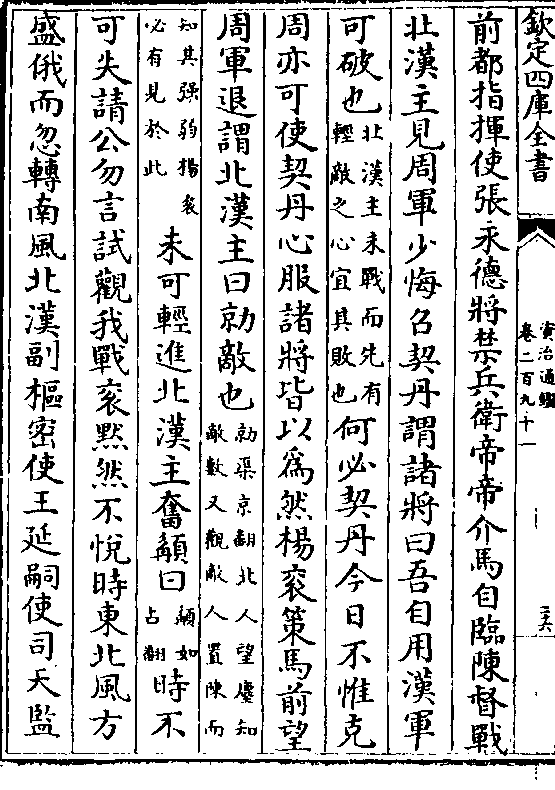 欽定四庫全書
資治通鑑
卷二百九十一
三六
前都指揮使張永德將禁兵衛帝帝介馬自臨陳督戰
北漢主見周軍少悔召契丹謂諸將曰吾自用漢軍
可破也北漢主未戰而先有輕敵之心宜其敗也何必契丹今日不惟克
周亦可使契丹心服諸將皆以為然楊衮策馬前望
周軍退謂北漢主曰勍敵也勍渠京翻北人望塵知敵數又觀敵人置陳而
知其强弱楊衮必有見於此未可輕進北漢主奮髯曰髯如占翻時不
可失請公勿言試觀我戰衮默然不悅時東北風方
盛俄而忽轉南風北漢副樞密使王延嗣使司天監